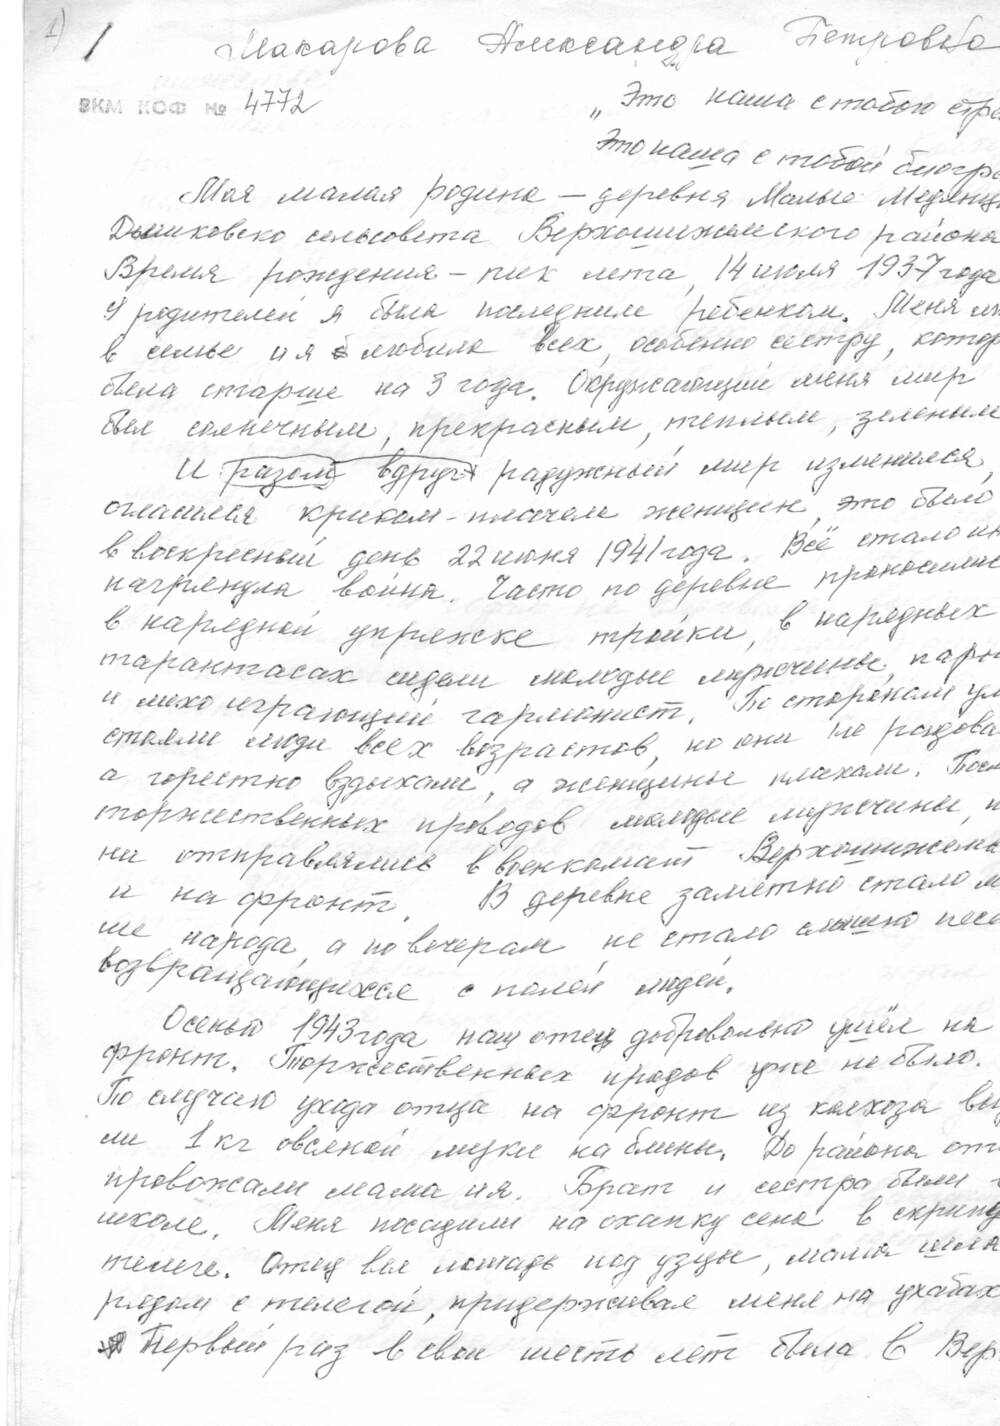 1) 1 Макарова Александра Петровна
ВКМ КОФ № 4772
„Это наша с тобою стра
Это наша с тобой биогра
Моя малая родина — деревня Малые Медянцы
сельсовета Верхошижемского района
Время рождения — пик лета, 14 июля 1937 года
У родителей я была последним ребенком. Меня
в семье и я любила всех, особенно сестру, котор
была старше на 3 года. Окружающий меня мир
был солнечным, прекрасным, теплым, зеленым
И разом вдруг радужный мир изменился,
огласился криком-плачем женщин, это было
в воскресный день 22 июня 1941 года. Всё стало ин
нагрянула война. Часто по деревне проносились
в нарядной упряжке тройки, в нарядных
тарантасах сидели молодые мужчины, парни
и лихо играющий гармонист. По сторонам ули
стояли люди всех возрастов, но они не радова
а горестно вздыхали, а женщины плакали. Посл
торжественных проводов молодые мужчины, п
ни отправлялись в военкомат Верхошижемь
и на фронт. В деревне заметно стало м
ше народа, а по вечерам не стало слышно песе
возвращающихся с полей людей.
Осенью 1943 года наш отец добровольно ушёл на
фронт. Торжественных продов уже не было.
По случаю ухода отца на фронт из колхоза выд
ли 1 кг овсяной муки на блины. До района отц
провожали мама и я. Брат и сестра были в
школе. Меня посадили на охапку сена в скрипу
телеге. Отец вел лошадь под уздцы, мама шла
рядом с телегой, придерживая меня на ухабах
Первый раз в свои шесть лет была в Вер